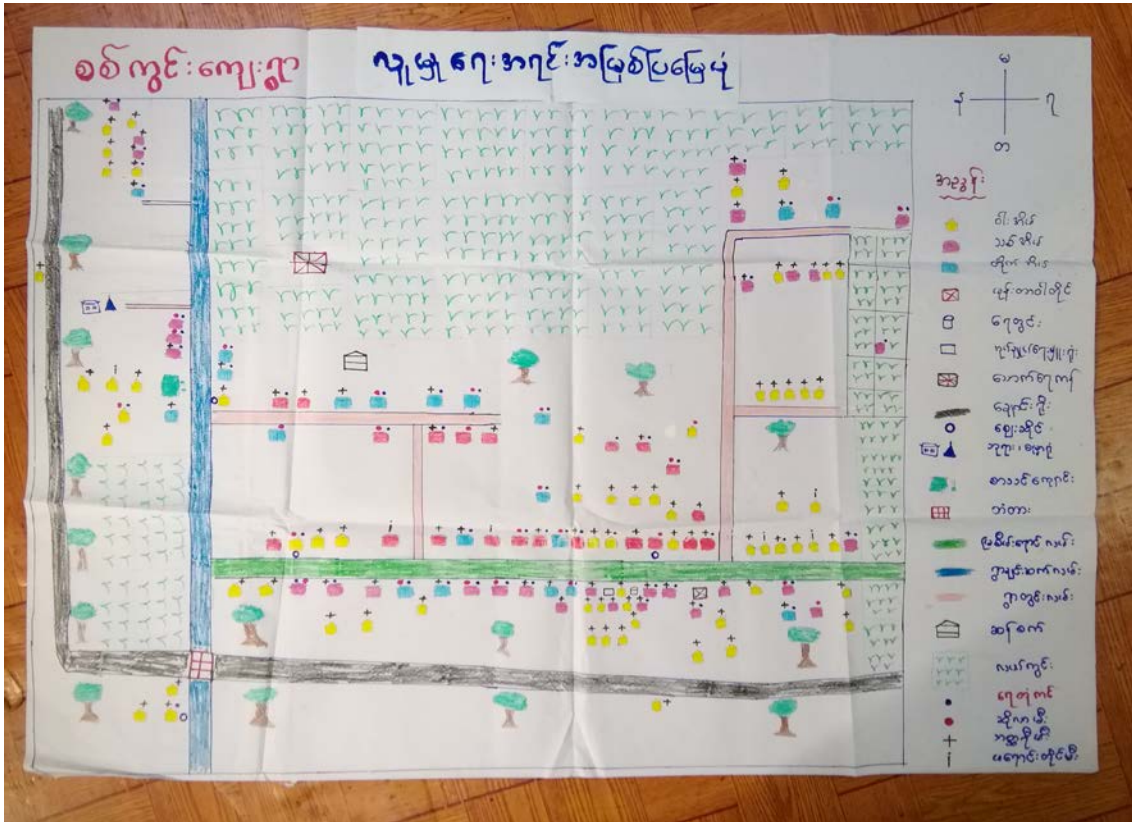 စစ်ကွင်းကျေးရွာ လူမှုရေးအရင်းအမြစ်ပြမြေပုံ
မ
န
တ
အညွှန်း
ဝါးအိမ်
သစ်အိမ်
တိုက်အိမ်
ဖုန်းတာဝါတိုင်
ရေတွင်း
သောက်ရေကန်
ချောင်းရိုး
ဈေးဆိုင်
စာသင်ကျောင်း
တံတား
မြစိမ်းရောင်လမ်း
ရွာချင်းဆက်လမ်း
ရွာတွင်းလမ်း
ဆန်စက်
လယ်ကွင်း
ရေတုံကင်
ဆိုလာမီး
ဘက္ထရီမီး
ဖယောင်းတိုင်မီး